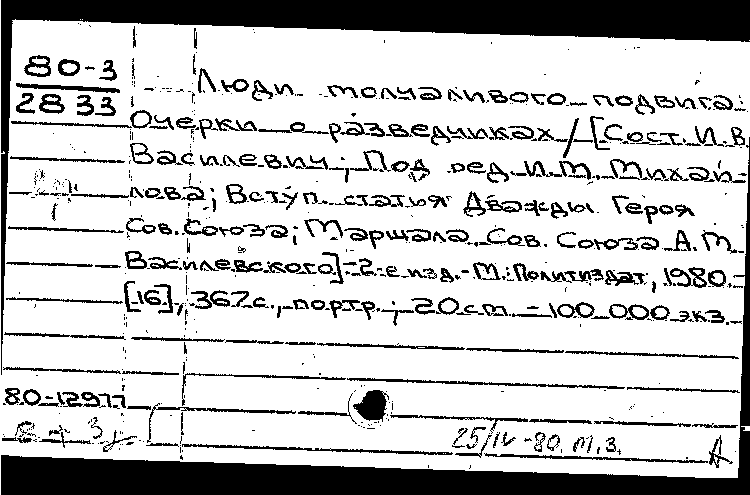 80-3
2833
Люди молчаливого подвига:
Очерки о разведчиках / [Сост. И. В.
Василевич; Под ред. И. М. Михай-
лова; Вступ. статья Дважды Героя
Сов. Союза; Маршала Сов. Союза А. М.
Василевского] - 2-е изд. - М.: Политиздат, 1980. -
[16], 367 с., портр.; 20 cm. - 100 000 экз.
80-12977
25/IV-80. М.З. А